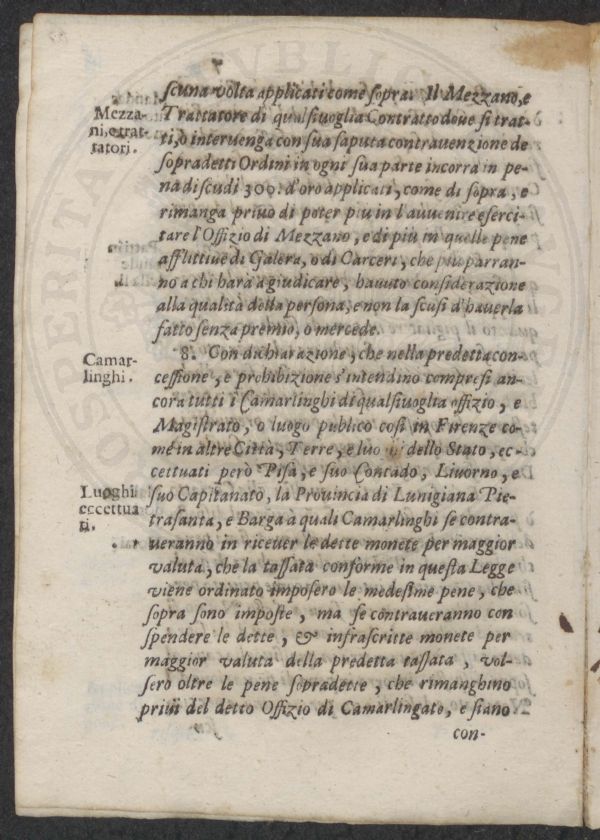 scuna volta applicati come sopra. Il Mezzano, e
Mezza-
ni, o trat-
tatori.
Trattatore di qualsiuoglia Contratto doue si trat-
ti, o interuenga con sua saputa contrauenzione de
sopradetti Ordini in ogni sua parte incorra in pe-
na di scudi 300. d'oro applicati, come di sopra, e
rimanga priuo di poter piu in l'auuenire eserci-
tare l'Offizio di Mezzano, e di più in quelle pene
afflittiue di Galera, o di Carceri, che più parran-
no a chi harà a giudicare, hauuto considerazione
alla qualità della persona, e non la scusi d'hauerla
fatto senza premio, o mercede.
Camar-
linghi.
8. Con dichiarazione, che nella predetta con-
cessione, e prohibizione s'intendino compresi an-
cora tutti i Camarlinghi di qualsiuoglia offizio, e
Magistrato, o luogo publico così in Firenze co-
me in altre Città, Terre, e luoghi dello Stato, ec-
cettuati però Pisa, e suo Contado, Liuorno, e
Luoghi
eccettua
ti.
suo Capitanato, la Prouincia di Lunigiana Pie-
trasanta, e Barga à quali Camarlinghi se contra-
ueranno in riceuer le dette monete per maggior
valuta, che la tassata conforme in questa Legge
viene ordinato imposero le medesime pene, che
sopra sono imposte, ma se contraueranno con
spendere le dette, & infrascritte monete per
maggior valuta della predetta tassata, vol-
sero oltre le pene sopradette, che rimanghino
priui del detto Offizio di Camarlingato, e siano
con-